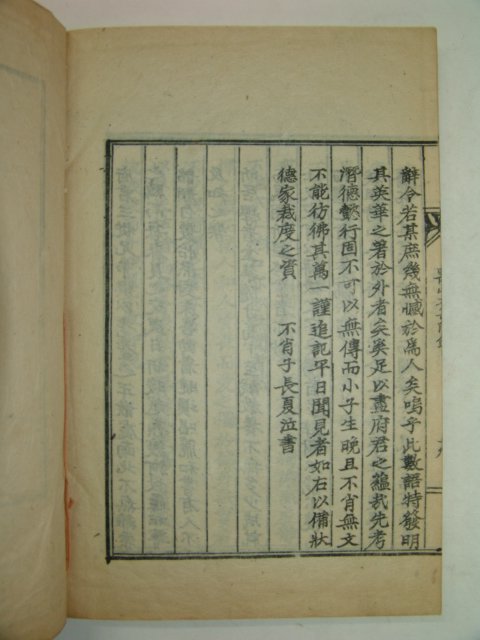 辭令若某庶幾無憾於為人矣嗚乎此數語特發明
其英華之著於外者矣奚足以盡府君之蘊哉先考
潛德懿行固不可以無傳而小子生晚且不肖無文
不能彷彿其萬一謹追記平日聞見者如右以備狀
德家裁度之資　不肖子長夏泣書